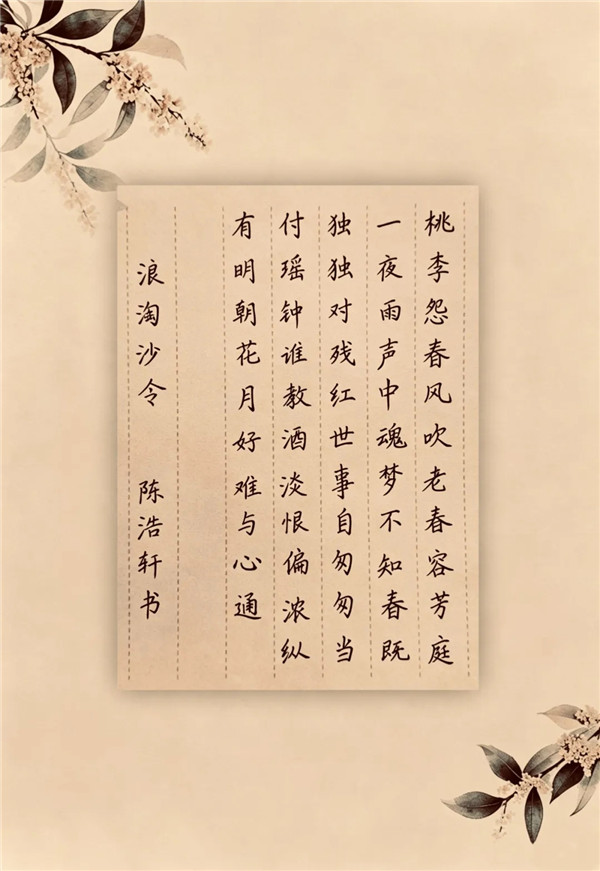 桃李怨春风吹老春容芳庭
一夜雨声中魂梦不知春既
独独对残红世事自匆匆当
付瑶钟谁教酒淡恨偏浓纵
有明朝花月好难与心通
浪淘沙令 陈浩轩书